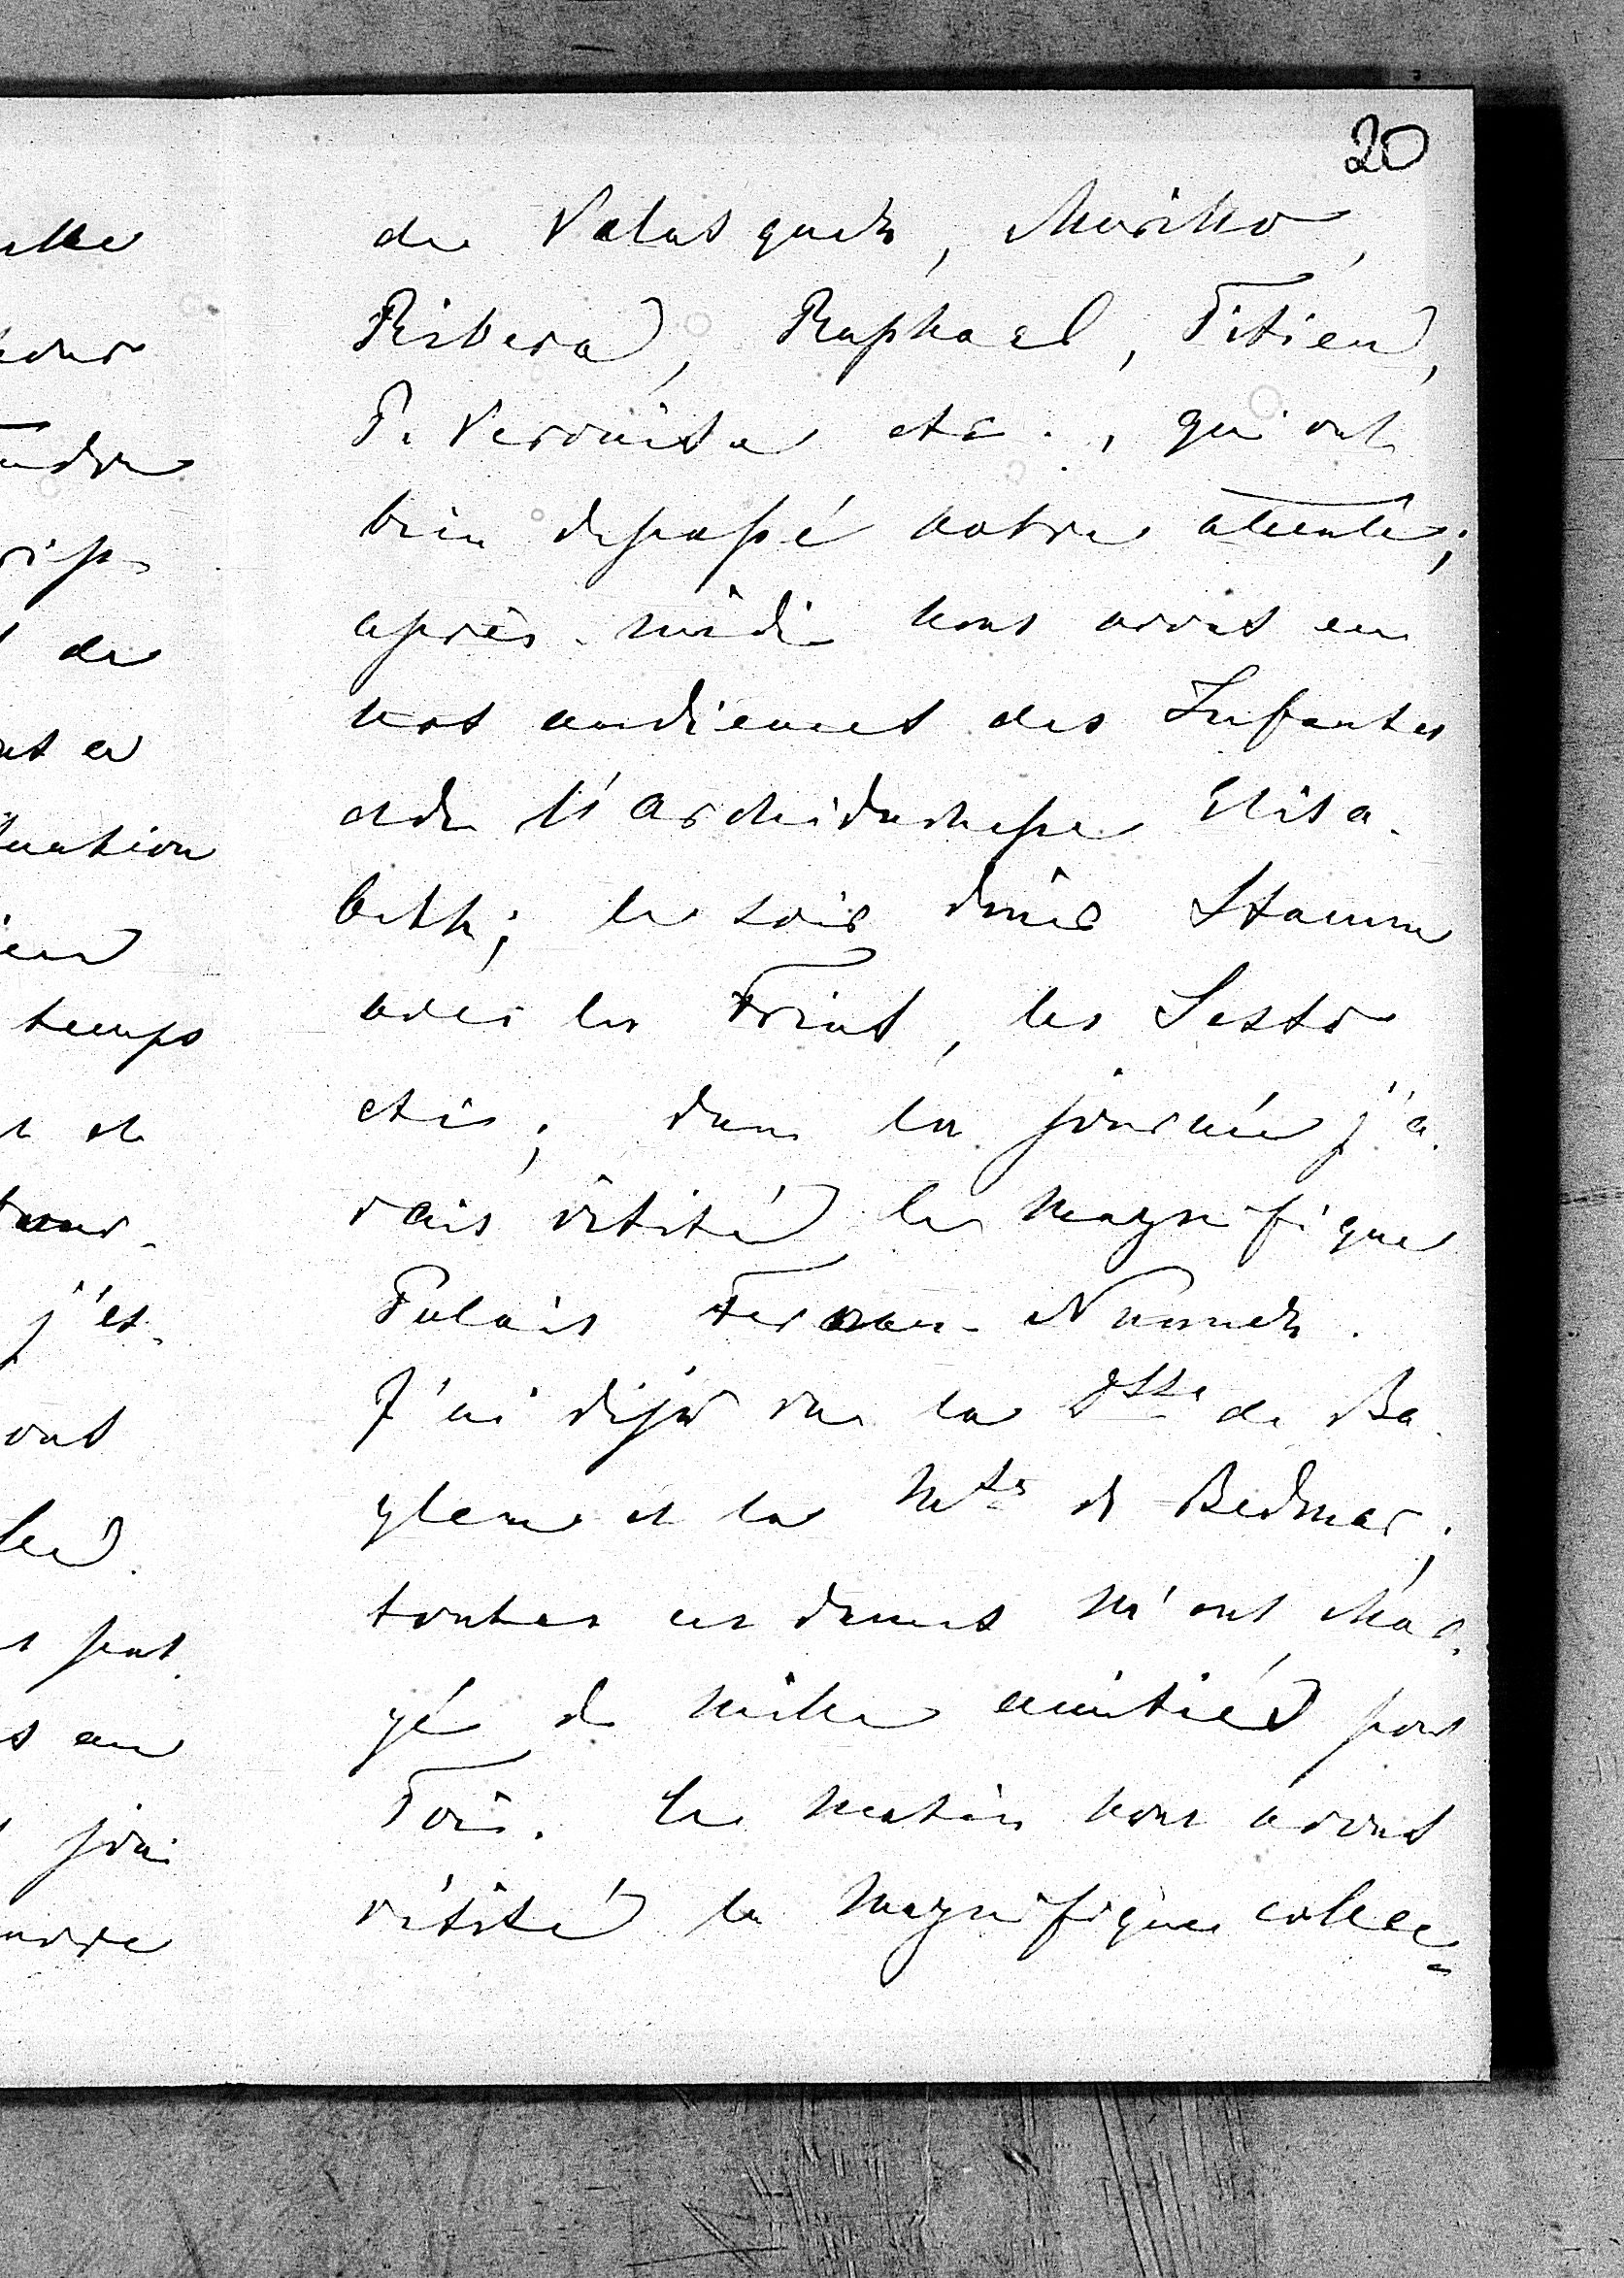 20
de Velasquez, Murillo,
Ribera, Raphael, Titien,
P. Veronèse etc., qui ont
bien depassé notre attente;
après-midi nous avons eu
nos audiences des Infantes
et de l'Archiduchesse Elisa-
beth; le soir diner Stamm
avec les Frias, les Sesto
etc; dans la journée j'a-
vais visité le magnifique
Palais Fernan-Nunnez.
J'ai déjà vu la Dsse de Ba
ylen et la Mse de Bedmar;
toutes ces dames m'ont char-
gé de mille amitiés pour
Toi. Le matin nous avons
visité la magnifique collec=
temps
j'es-